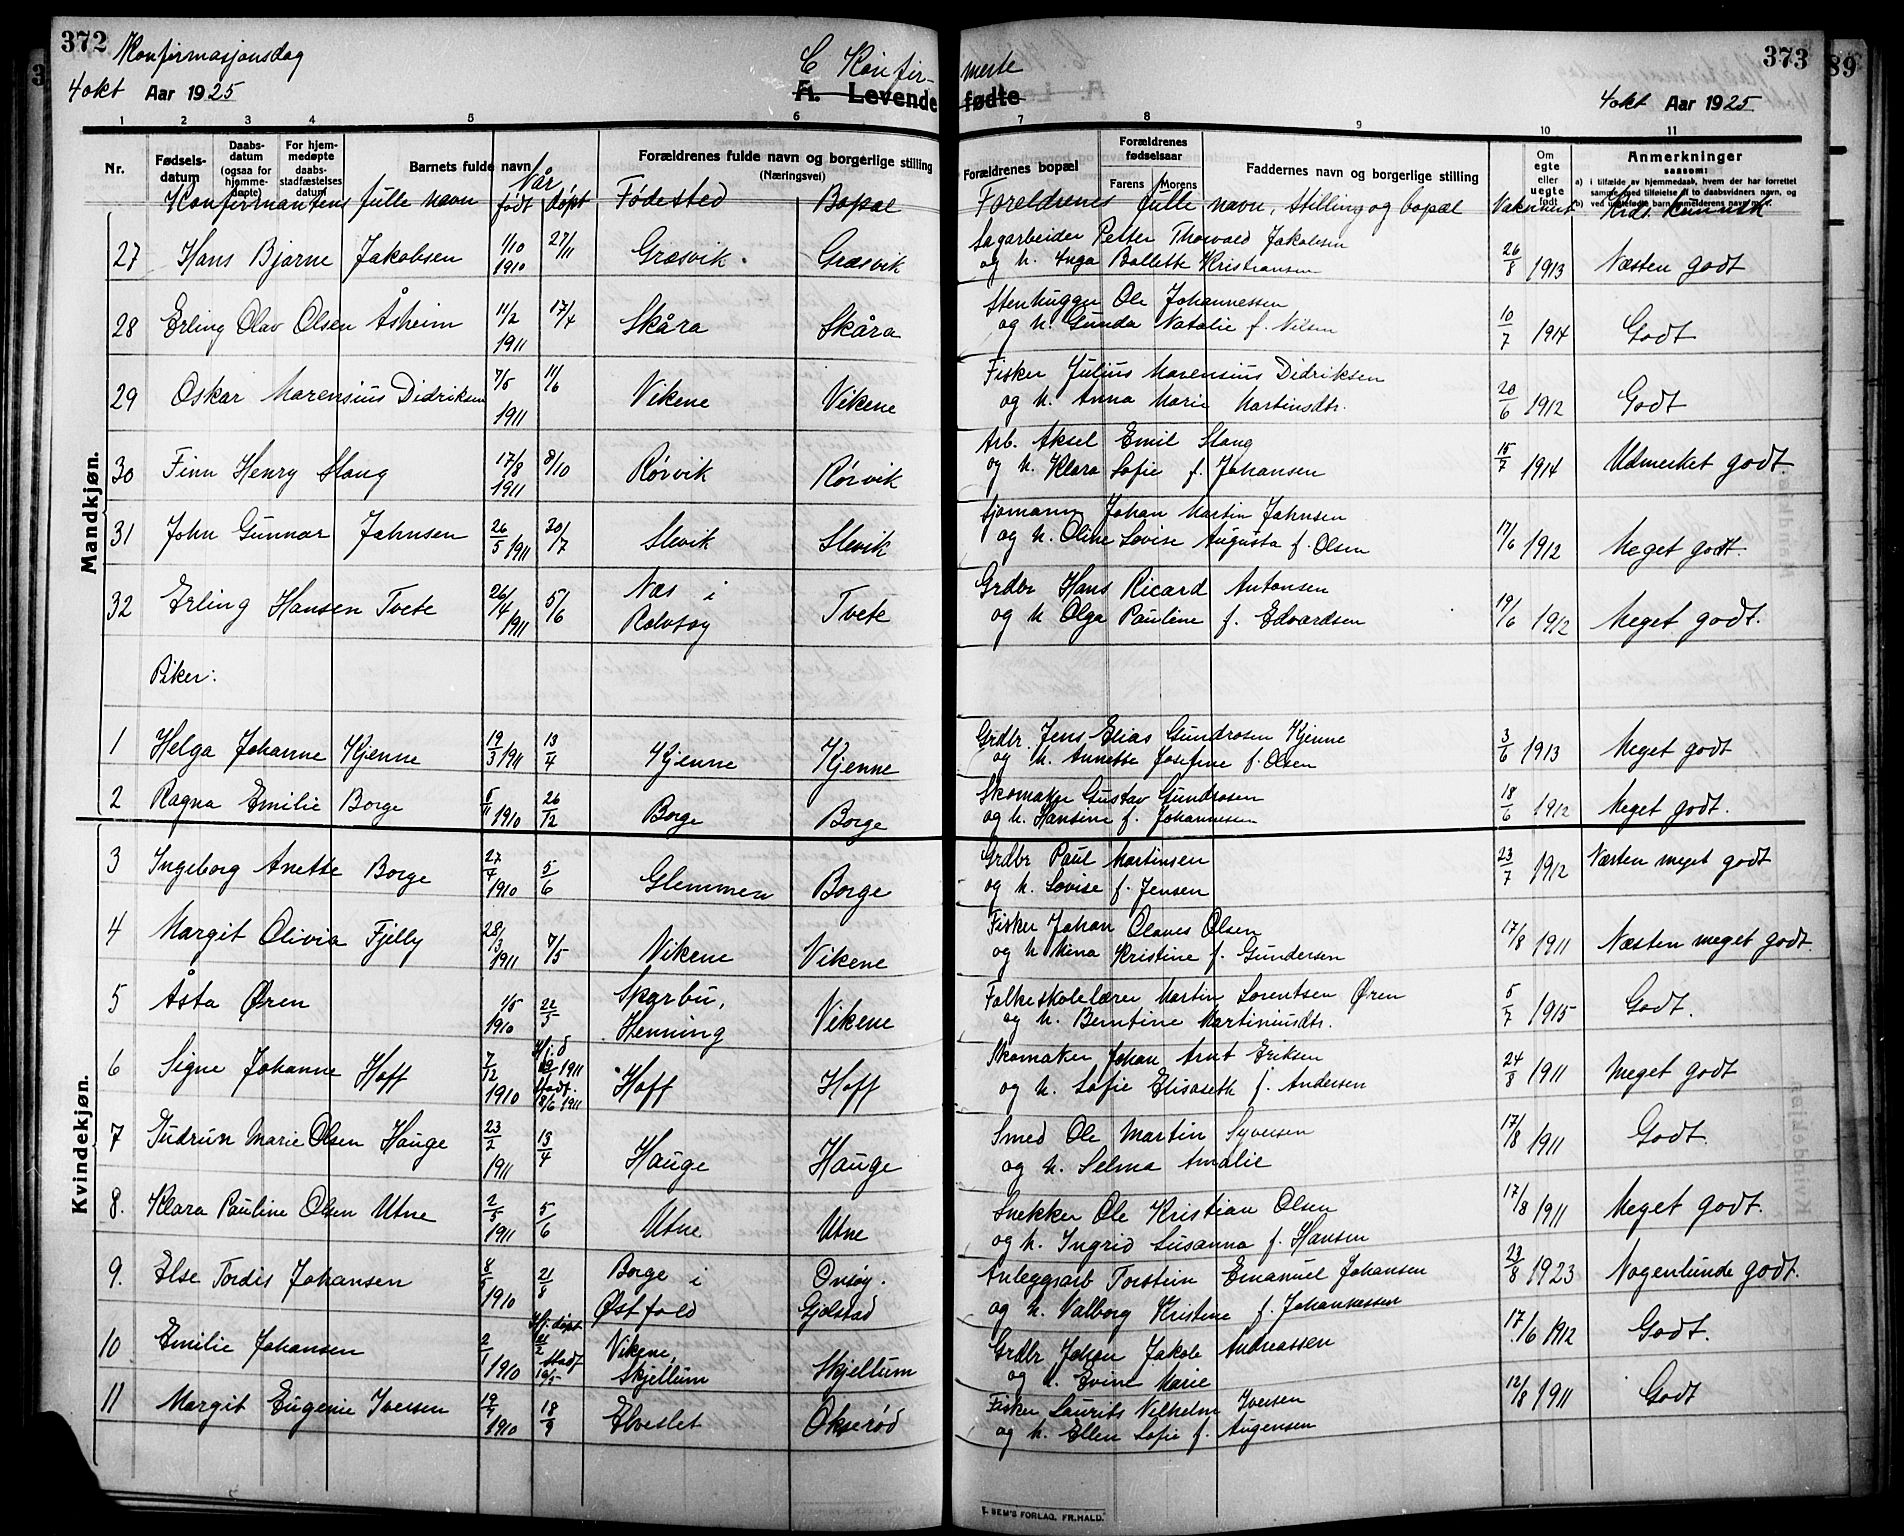 372
Konfirmasjonsdag
4 okt Aar 1925
C Konfir- merte
A. Levende fødte
373
4 okt Aar 1925
89
1 2 3 4 5 6 7 8 9 10 11
Nr. Fødsels-datum Daabs-datum (ogsaa for hjemme-døpte) For hjem-medøpte daabs-stadfæstelses datum Barnets fulde navn Forældrenes fulde navn og borgerlige stilling (Næringsvei) Forældrenes bopæl Forældrenes fødselsaar Farens Morens Faddernes navn og borgerlige stilling Om egte eller uegte født Anmerkninger saasom:
a) i tilfælde av hjemmedaab, hvem der har forrettet samme, med tilføielse af to daabsvidners navn, og
b) ved uegtefødte barn anmelderens navn
Konfirmantens fulle navn Når født døpt Fødested Bopæl Foreldrenes fulle navn, stilling og bopæl Vaksinert Krist. kunnsk
Mandkjøn.
27 Hans Bjarne Jakobsen 1/10 1910 27/11 Græsvik Græsvik Sagarbeider Petter Thorvald Jakobsen
og h. Inga Bollette Kristiansen 26/8 1913 Næsten godt
28 Erling Olav Olsen Åsheim 11/2 1911 17/4 Skåra Skåra Stenhugger Ole Johannessen
og h. Gunda Natalie f. Nilsen 10/7 1914 Godt
29 Oskar Marensius Didriksen 7/5 1911 11/6 Vikene Vikene Fisker Julius Marensius Didriksen
og h. Anna Marie Martinsdtr. 20/6 1912 Godt
30 Finn Henry Stang 17/8 1911 8/10 Rørvik Rørvik Arb. Aksel Emil Stang
og h. Klara Sofie f. Johansen 15/7 1914 Udmerket godt.
31 John Gunnar Jahnsen 26/5 1911 20/7 Slevik Slevik Sjømann Johan Martin Jahnsen
og h. Oline Lovise Augusta f. Olsen 17/6 1912 Meget godt.
32 Erling Hansen Tvete 26/4 1911 5/6 Næs i Rolvsøy Tvete Grdbr Hans Ricard Antonsen
og h. Olga Pauline f. Edvardsen 19/6 1912 Meget godt.
Piker:
1 Helga Johanne Kjenne 19/3 1911 13/4 Kjenne Kjenne Grdbr. Jens Elias Gundrosen Kjenne
og h. Annette Josefine f. Olsen 3/6 1913 Meget godt
2 Ragna Emilie Borge 5/11 1910 26/12 Borge Borge Skomaker Gustav Gundrosen
og h. Hansine f. Johannesen 18/6 1912 Meget godt.
Kvindekjøn.
3 Ingeborg Anette Borge 27/4 1910 5/6 Glemmen Borge Grdbr Paul Martinsen
og h. Lovise f. Jensen 23/7 1912 Næsten meget godt
4 Margit Olivia Fjelly 28/3 1911 7/5 Vikene Vikene Fisker Johan Olaves Olsen
og h Mina Kristine f. Gundersen 17/8 1911 Næsten meget godt.
5 Åsta Øren 1/5 1910 22/5 Sparbu, Henning Vikene Folkeskolelærer Martin Lorentsen Øren
og h. Berntine Martiniusdtr. 5/7 1915 Godt.
6 Signe Johanne Hoff 7/12 1910 Hj.d 1911 Stadf. 18/6 1911 Hoff Hoff Skomaker Johan Arnt Eriksen
og h. Sofie Elisabeth f. Andersen 24/8 1911 Meget godt
7 Gudrun Marie Olsen Hauge 23/2 1911 13/4 Hauge Hauge Smed Ole Martin Syversen
og h. Selma Amalie 17/8 1911 Godt.
8. Klara Pauline Olsen Utne 2/5 1911 5/6 Utne Utne Snekker Ole Kristian Olsen
og h. Ingrid Susanna f. Hansen 17/8 1911 Meget godt.
9. Else Tordis Johansen 8/5 1910 21/8 Borge i Østfold Onsøy. Gjølstad Anleggsarb Torstein Emanuel Johansen
og h. Valborg Kristine f. Johannessen 23/8 1923 Nogenlunde godt.
10 Emilie Johansen 2/1 1910 Hj. døpt 21/2 Stadf 16/5 Vikene, Skjellum Skjellum Grdbr Johan Jakob Andreassen
og h. Evine Marie 17/6 1912 Godt.
11 Margit Eugenie Iversen 19/7 1910 18/9 Elveslet Økserød Fisker Laurits Vilhelm Iversen
og h. Ellen Sofie f. Augensen 12/8 1911 Godt
E. SEM'S FORLAG, FR.HALD.